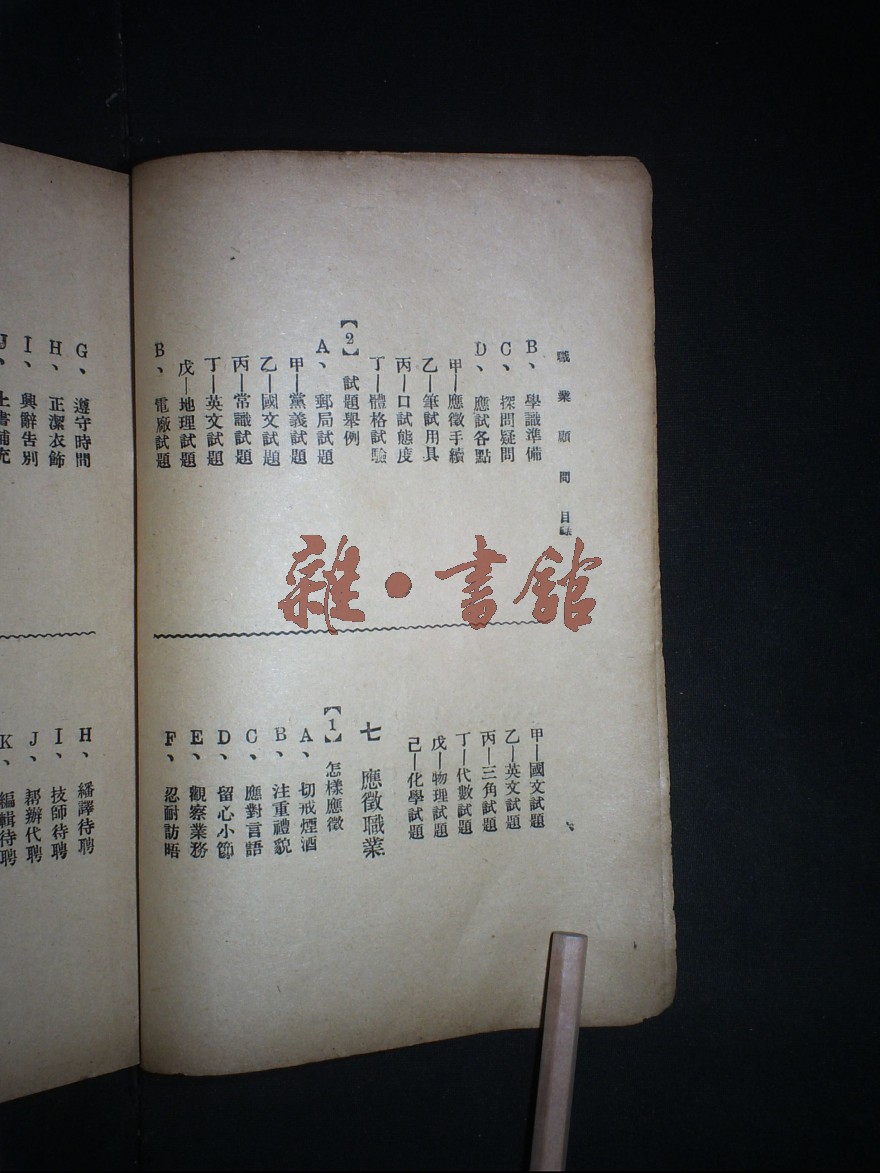 職業顧問 目錄
B、學識準備
C、探問疑問
D、應試各點
甲—應徵手續
乙—筆試用具
丙—口試態度
丁—體格試驗
【2】試題舉例
A、郵局試題
甲—黨義試題
乙—國文試題
丙—常識試題
丁—英文試題
戊—地理試題
B、電廠試題
甲—國文試題
乙—英文試題
丙—三角試題
丁—代數試題
戊—物理試題
己—化學試題
七 應徵職業
【1】怎樣應徵
A、切戒煙酒
B、注重禮貌
C、應對言語
D、留心小節
E、觀察業務
F、忍耐訪晤
G、遵守時間
H、正潔衣飾
I、興辭告別
J、上書補充
H、繙譯待聘
I、技師待聘
J、幫辦代聘
K、編輯待聘
雜·書館